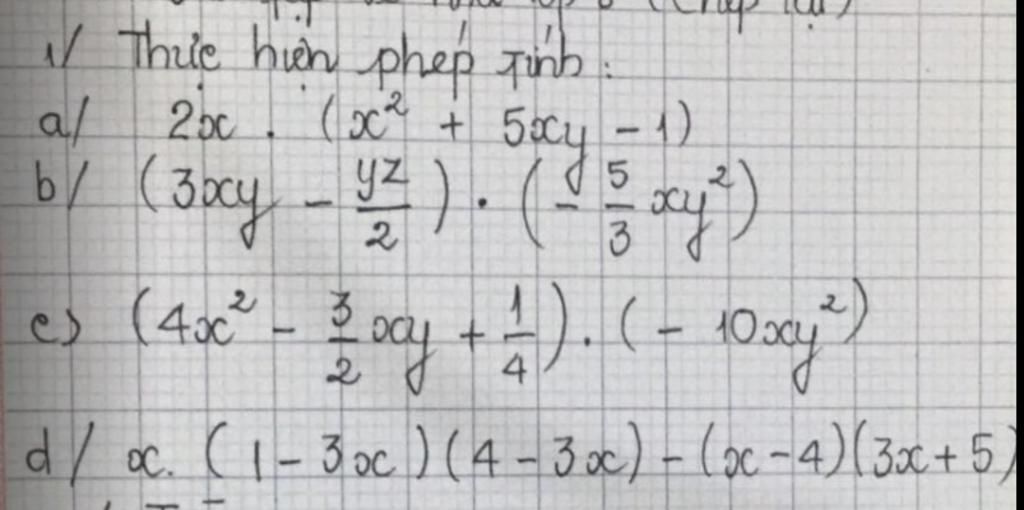 1/ Thực hiện phép tính:
a/ 2x . (x² + 5xy - 1)
b/ (3xy - yz/2) . (- 5/3 xy²)
c) (4x² - 3/2 xy + 1/4) . (- 10xy²)
d/ x. (1 - 3x)(4 - 3x) - (x - 4)(3x + 5)